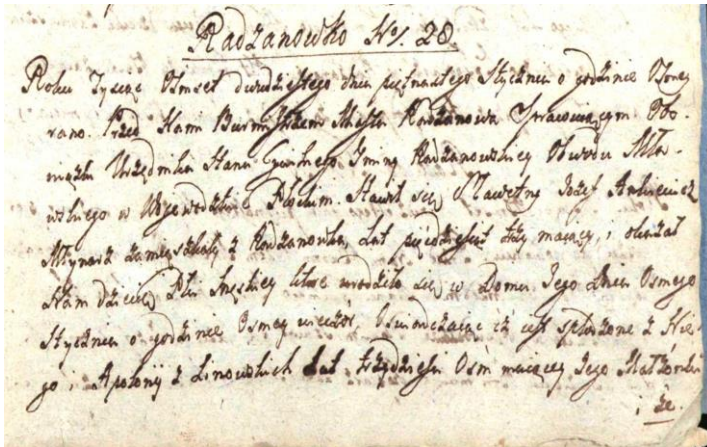 Radzanowko No. 28.
Roku Tysiąc Ośmset dwudziestego dnia piętnastego Stycznia o godzinie Ósmey
rano. Przed Nami Burmistrzem Miasta Radzanowa Sprawuiącym Obo-
wiązki Urzędnika Stanu Cywilnego Gminy Radzanowskiey Obwodu Mła-
wskiego w Wojewodztwie Płockim. Stawił się Sławetny Jozef
Młynarz zamieszkały z Radzanowka, Lat pięćdziesiąt trzy maiący, i okazał
Nam dziecię Płci Męskiey które urodziło się w Domu Jego Dnia Osmego
Stycznia o godzinie Osmey wieczor, Oswiadczaiąc iż iest spłodzone z Nie-
go i Apolonij z Linowskich Lat trzydzieści Ośm maiącey Jego Małżonki
i że.